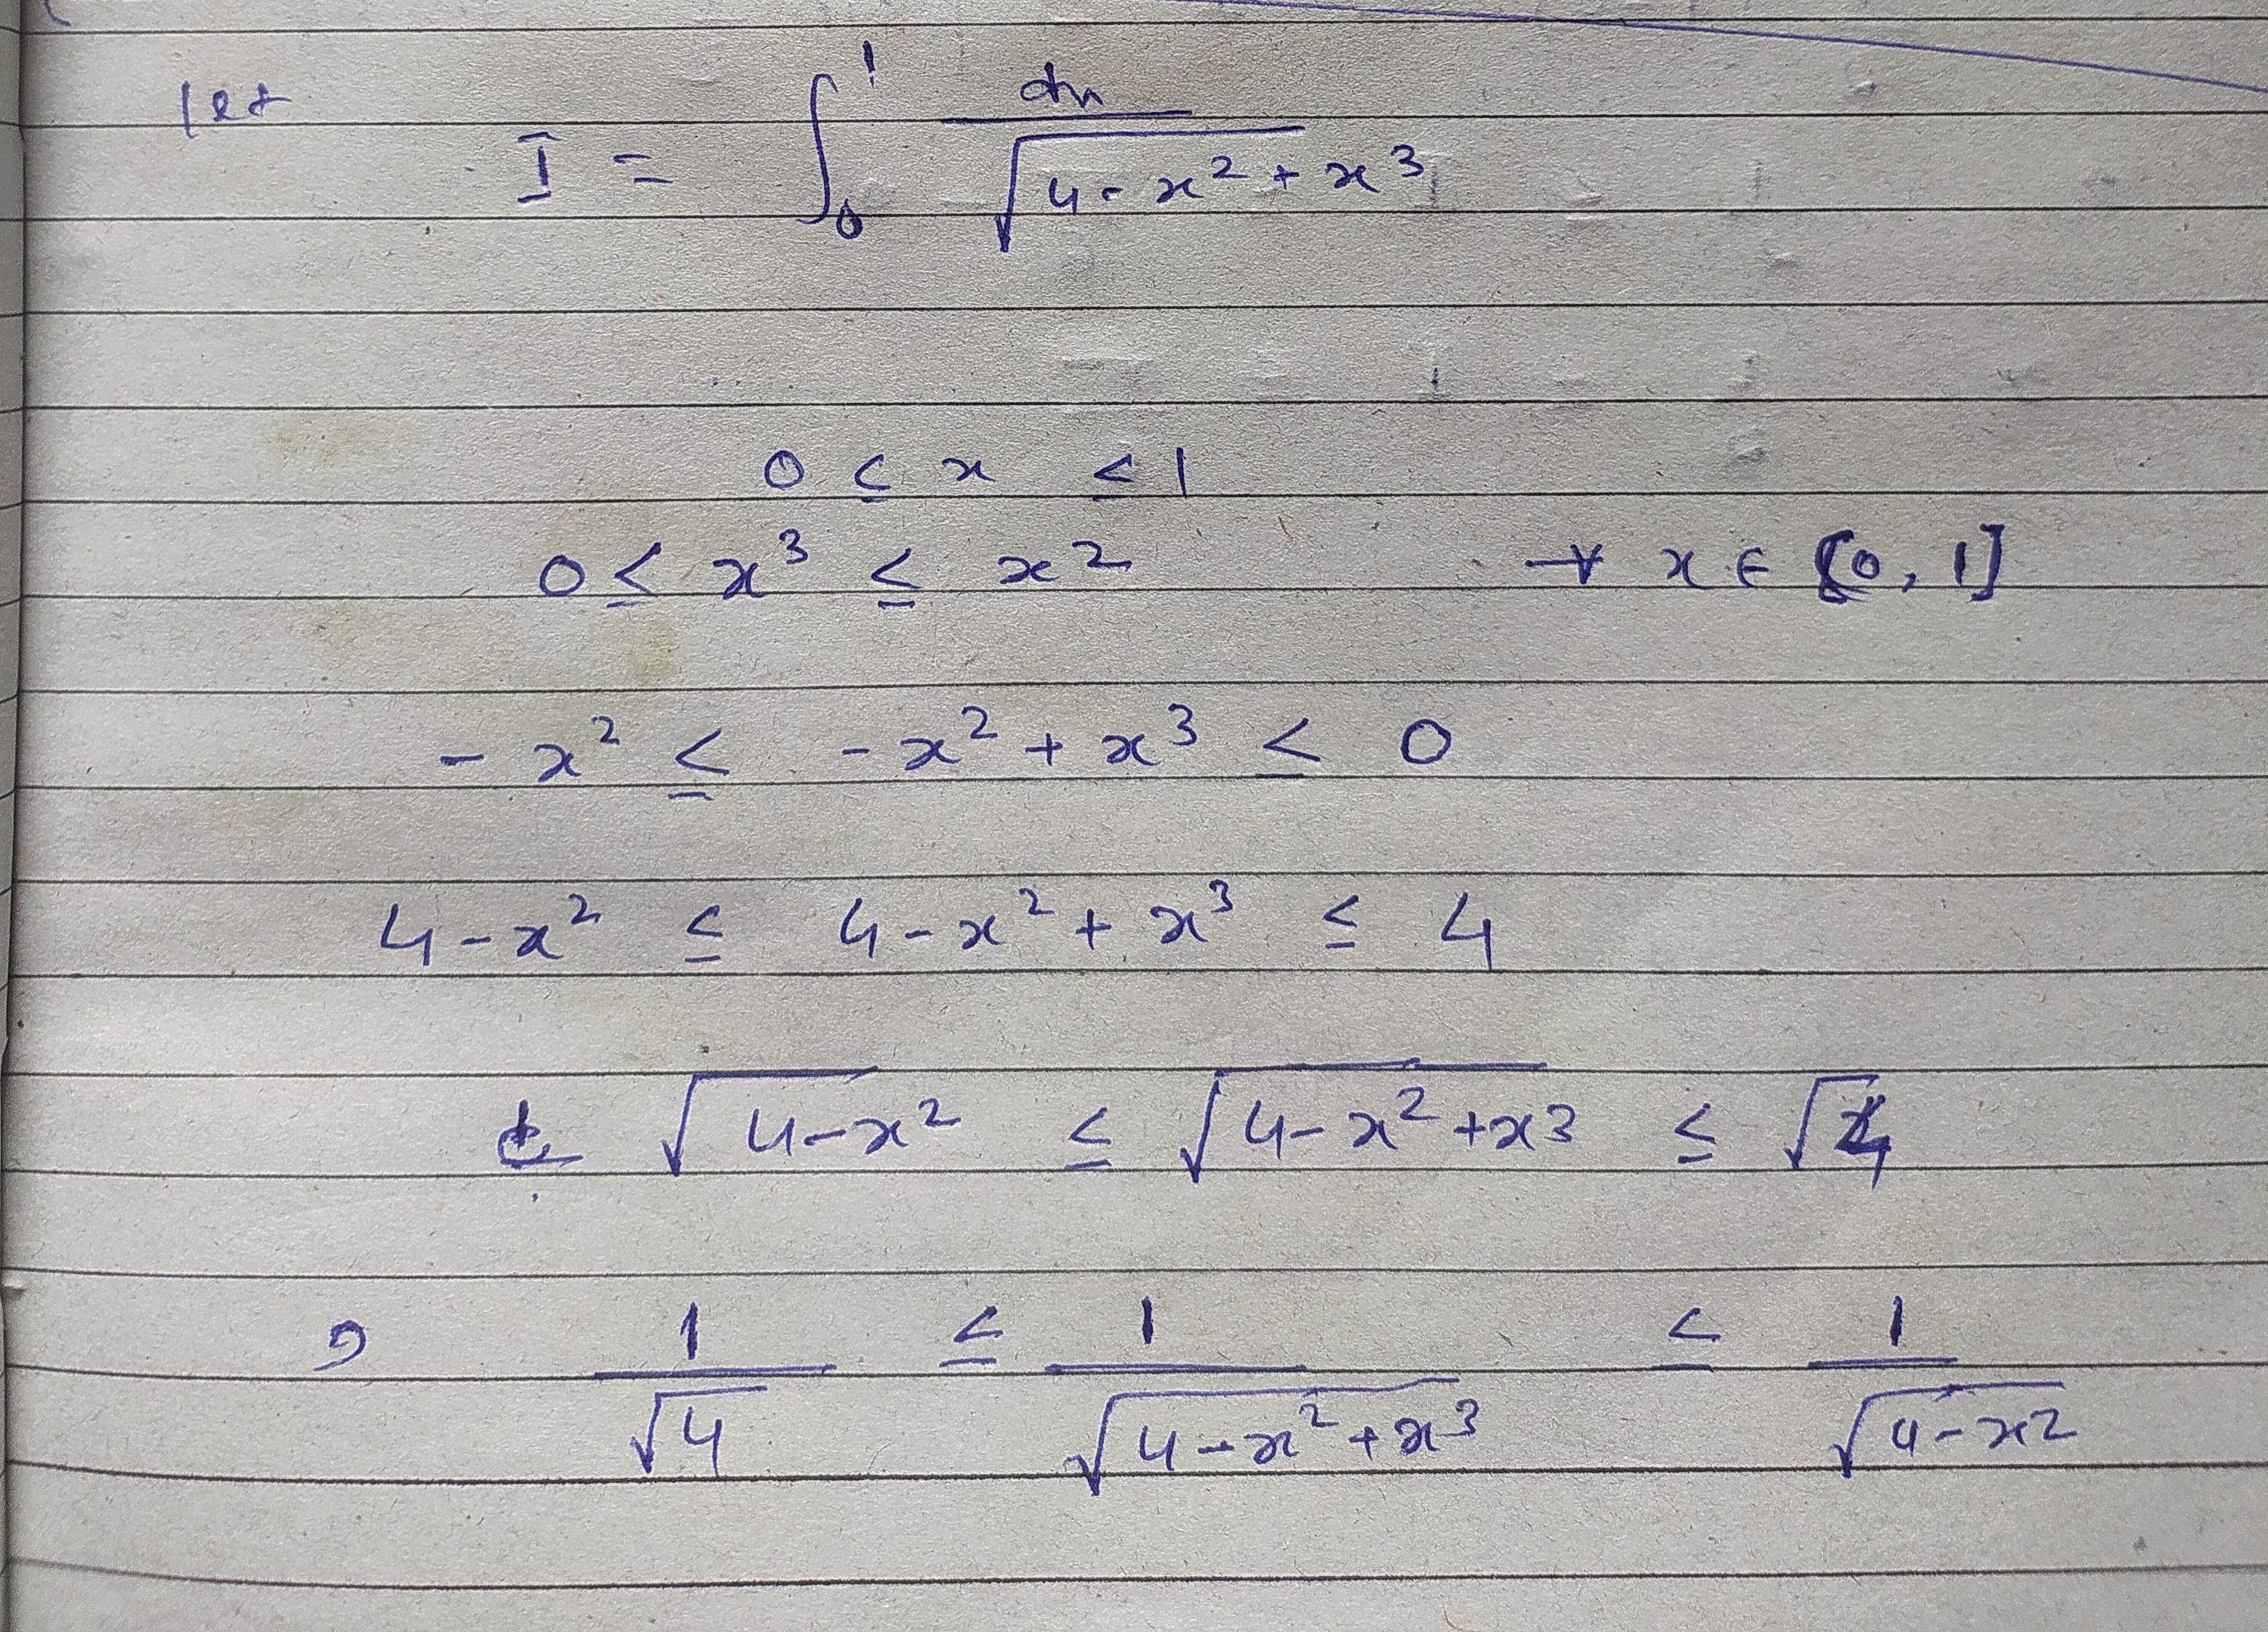 let
I = ∫₀¹ dx / √(4 - x² + x³)
0 ≤ x ≤ 1
0 ≤ x³ ≤ x² ∀ x ∈ [0, 1]
- x² ≤ - x² + x³ ≤ 0
4 - x² ≤ 4 - x² + x³ ≤ 4
√(4 - x²) ≤ √(4 - x² + x³) ≤ √4
1/√4 ≤ 1/√(4 - x² + x³) ≤ 1/√(4 - x²)